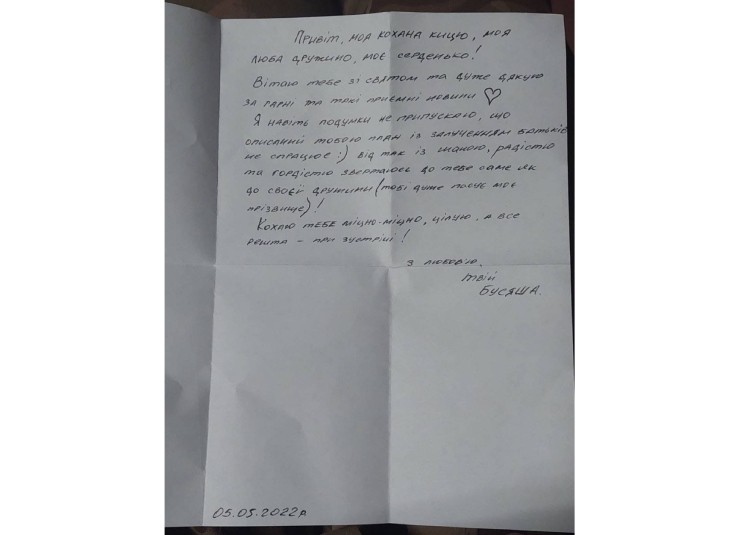 Привіт, моя кохана кицю, моя
люба дружино, моє серденько!
Вітаю тебе зі святом та дуже дякую
за гарні та такі приємні новини ♡
Я навіть подумки не припускаю, що
описаний тобою план із залученням батьків
не спрацює :) Від так із шаною, радістю
та гордістю звертаюсь до тебе саме як
до своєї дружини (тобі дуже посує моє
прізвище)!
Кохаю тебе міцно-міцно, цілую, а все
решта – при зустрічі!
З любов'ю,
твій
Бусяша.
05.05.2022р